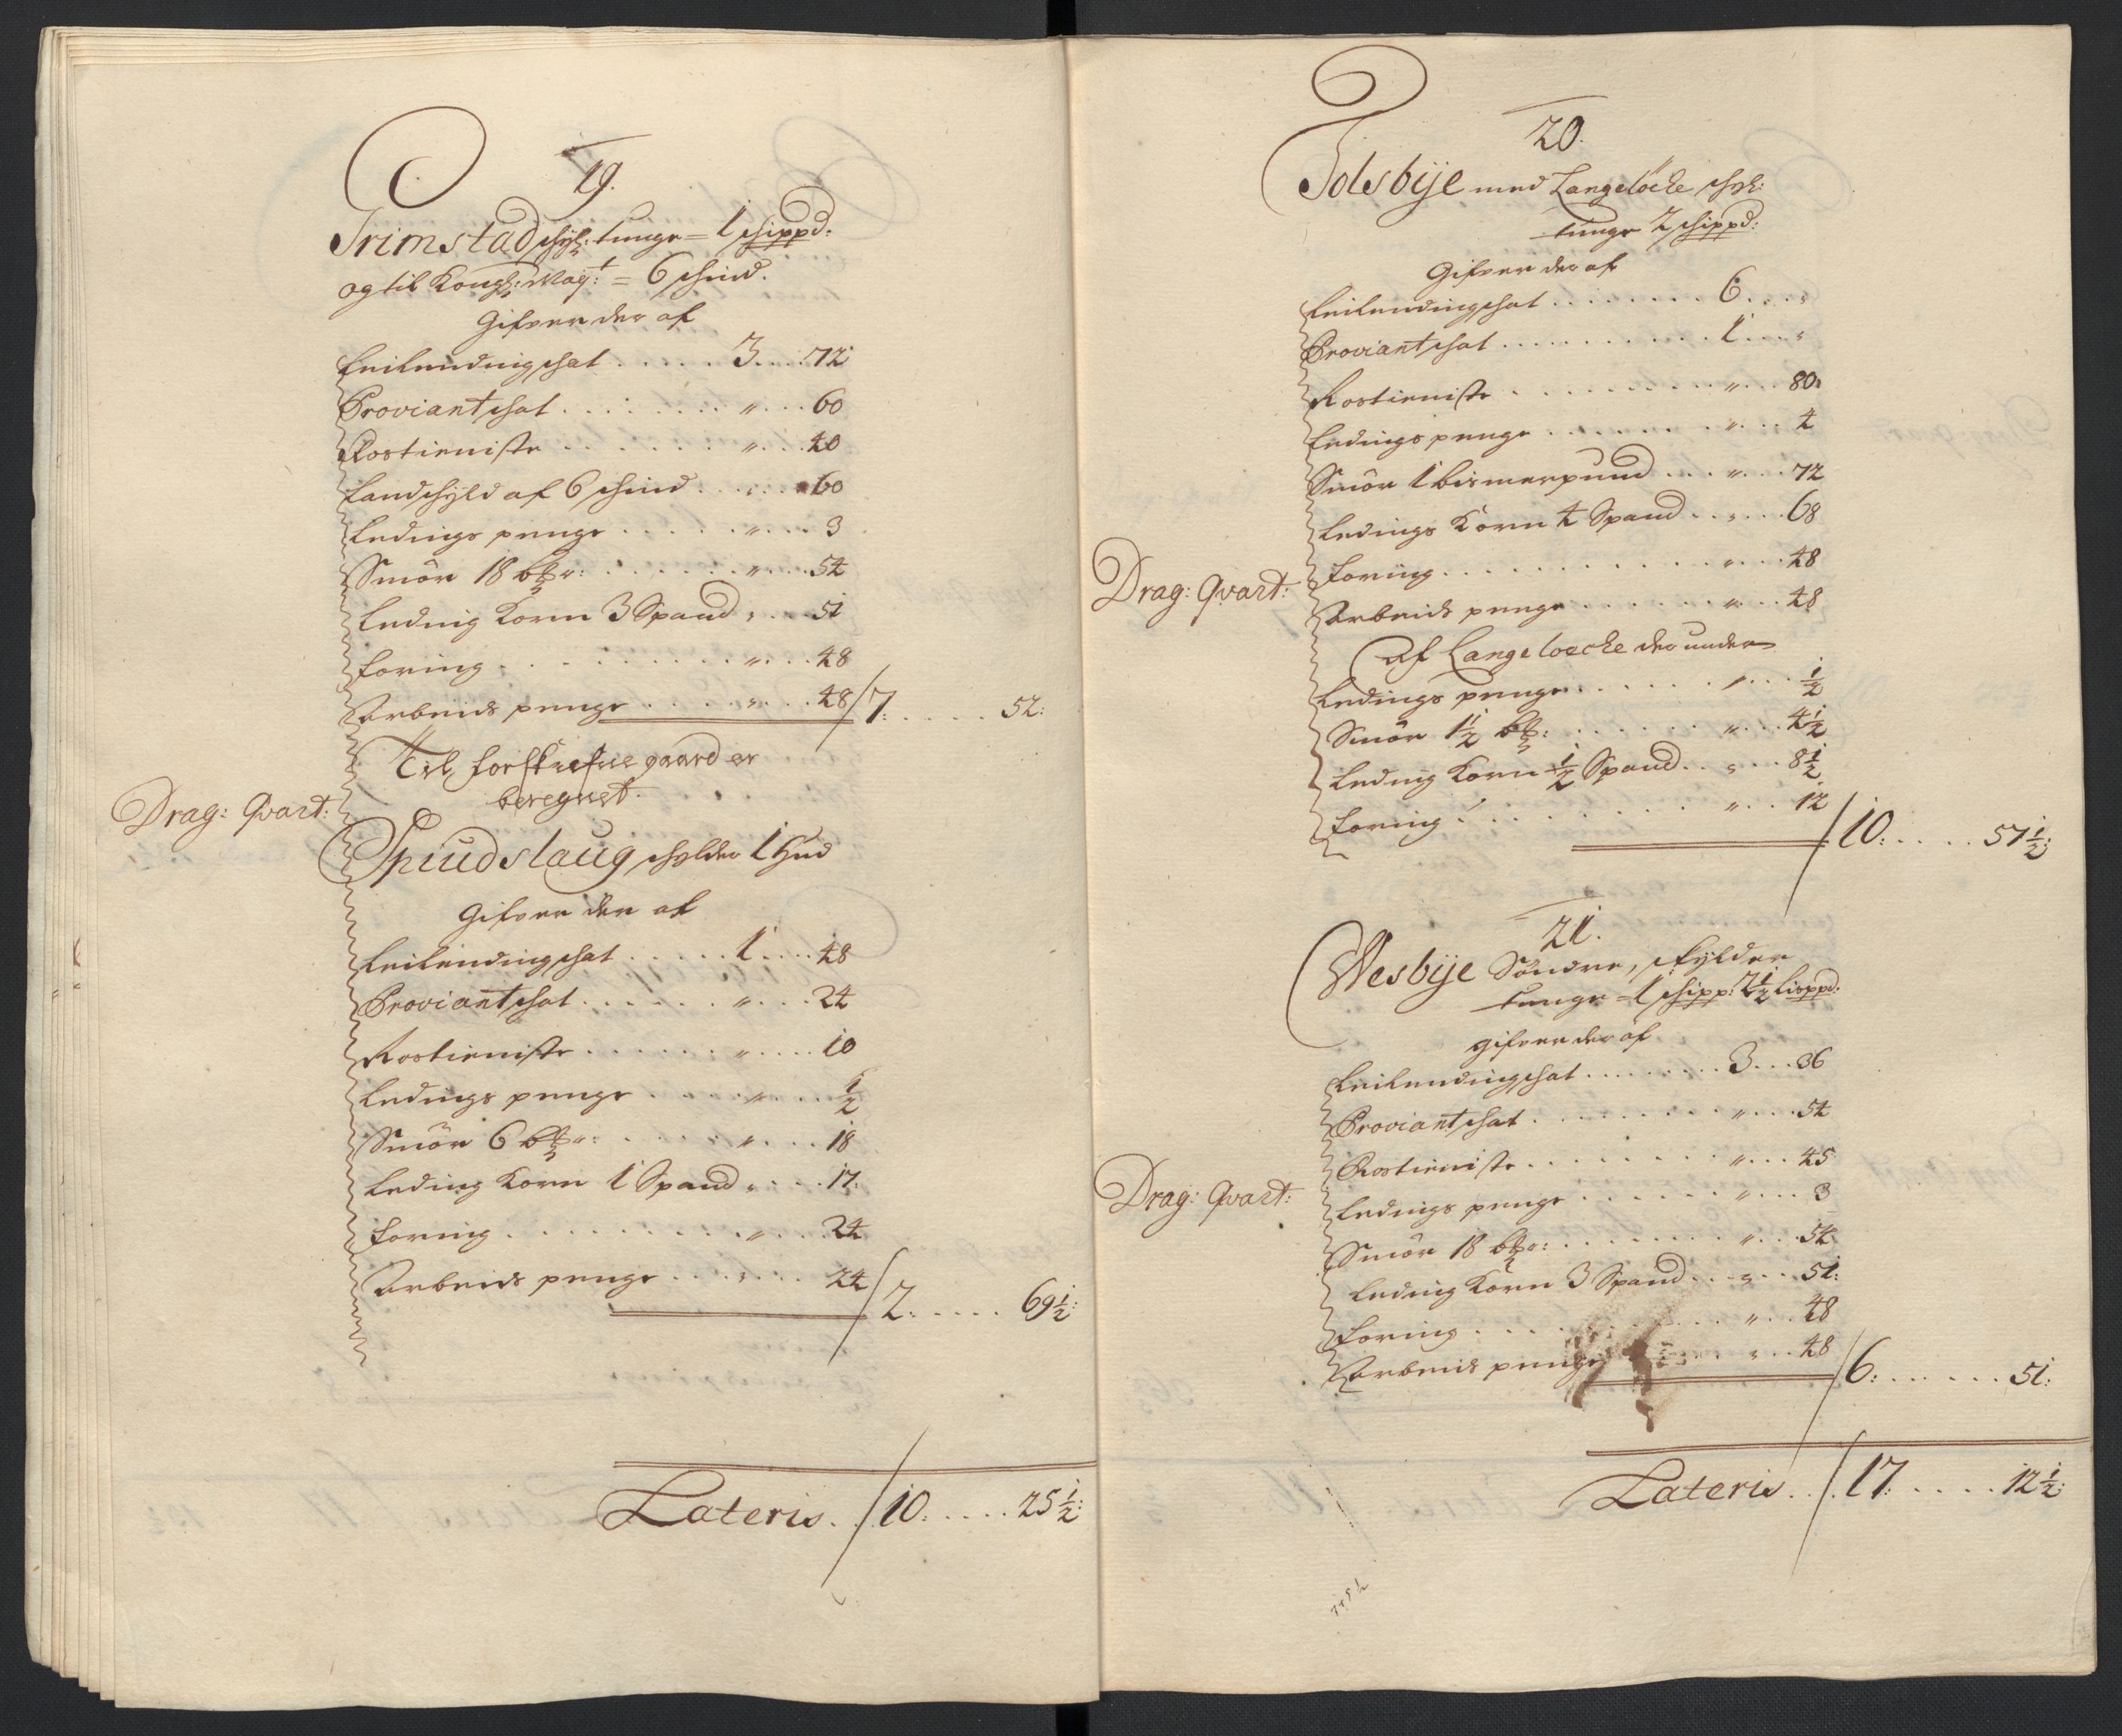 19.
Grimstad schyl: tunge = 1 schippd:
og til Kongl: Mayt: = 6 schind.
Gifver der af
Leilendingschat . . . . . 3 . . . 72
Proviantschat . . . . . . „ . . . 60
Rostieniste . . . . . . „ . . . 40
Landschyld af 6 schind . . . . . 60
Ledings penge . . . . . „ . . . 3
Smör 18 b℔r: . . . . . . „ . . . 54
Leding Korn 3 Spand „ . . . 51
Foring . . . . . . . . „ . . . 48
Arbeids penge . . . . . „ . . . 48 / 7: . . . . . 52:
Til forskrefne gaard er
beregnet.
Drag: Qvart:
Spundslaug schylder 1 Hud
Gifver der af
Leilendingschat . . . . . 1 . . . 48
Proviantschat . . . . . . „ . . . 24
Rostieniste . . . . . . „ . . . 10
Ledings penge . . . . . „ . . . ½
Smör 6 b℔r: . . . . . . „ . . . 18
Leding Korn 1 Spand „ . . . 17:
Foring . . . . . . . . „ . . . 24
Arbeids penge . . . . „ . . . 24 / 2: . . . . . 69½:
Lateris . / 10: . . . . . 25½:
20.
Idesbije med Langelöche schyl:
tunge 2 schippd:
Gifver der af
Leilendingschat . . . . . . . . 6 . . . „
Proviantschat . . . . . . . . . . 1 . . . „
Rostieniste . . . . . . . . . „ . . . 80:
Ledings penge . . . . . . . . „ . . . 4
Smör 1 bismerpund . . . „ . . . 72
Ledings Korn 4 Spand . . „ . . . 68
Drag: Qvart:
Foring . . . . . . . . . . . „ . . . 48
Arbeids penge . . . . . . „ . . . 48
Af Langeloeche der under
Ledings penge . . . . . . „ . . . ½
Smör 1½ b℔: . . . . . . „ . . . 4½
Leding Korn ½ Spand . . „ . . . 8½
Foring . . . . . . . . „ . . . 12 / 10: . . . . 57½:
21.
Wesbije Söndre, skylder
tunge = 1 schipp: 2½ lisppd:
gifver der af
Leilendingschat . . . . . . . . 3 . . . 36
Proviantschat . . . . . . . . „ . . . 54
Rostieniste . . . . . . . . „ . . . 45
Drag: Qvart:
Ledings penge . . . . . . „ . . . 3
Smör 18 b℔r: . . . . . . . „ . . . 54
Leding Korn 3 Spand . . „ . . . 51:
Foring . . . . . . . . „ . . . 48
Arbeids penge . . . . „ . . . 48 / 6: . . . . . . 51:
Lateris . . / 17 . . . . . 12½: